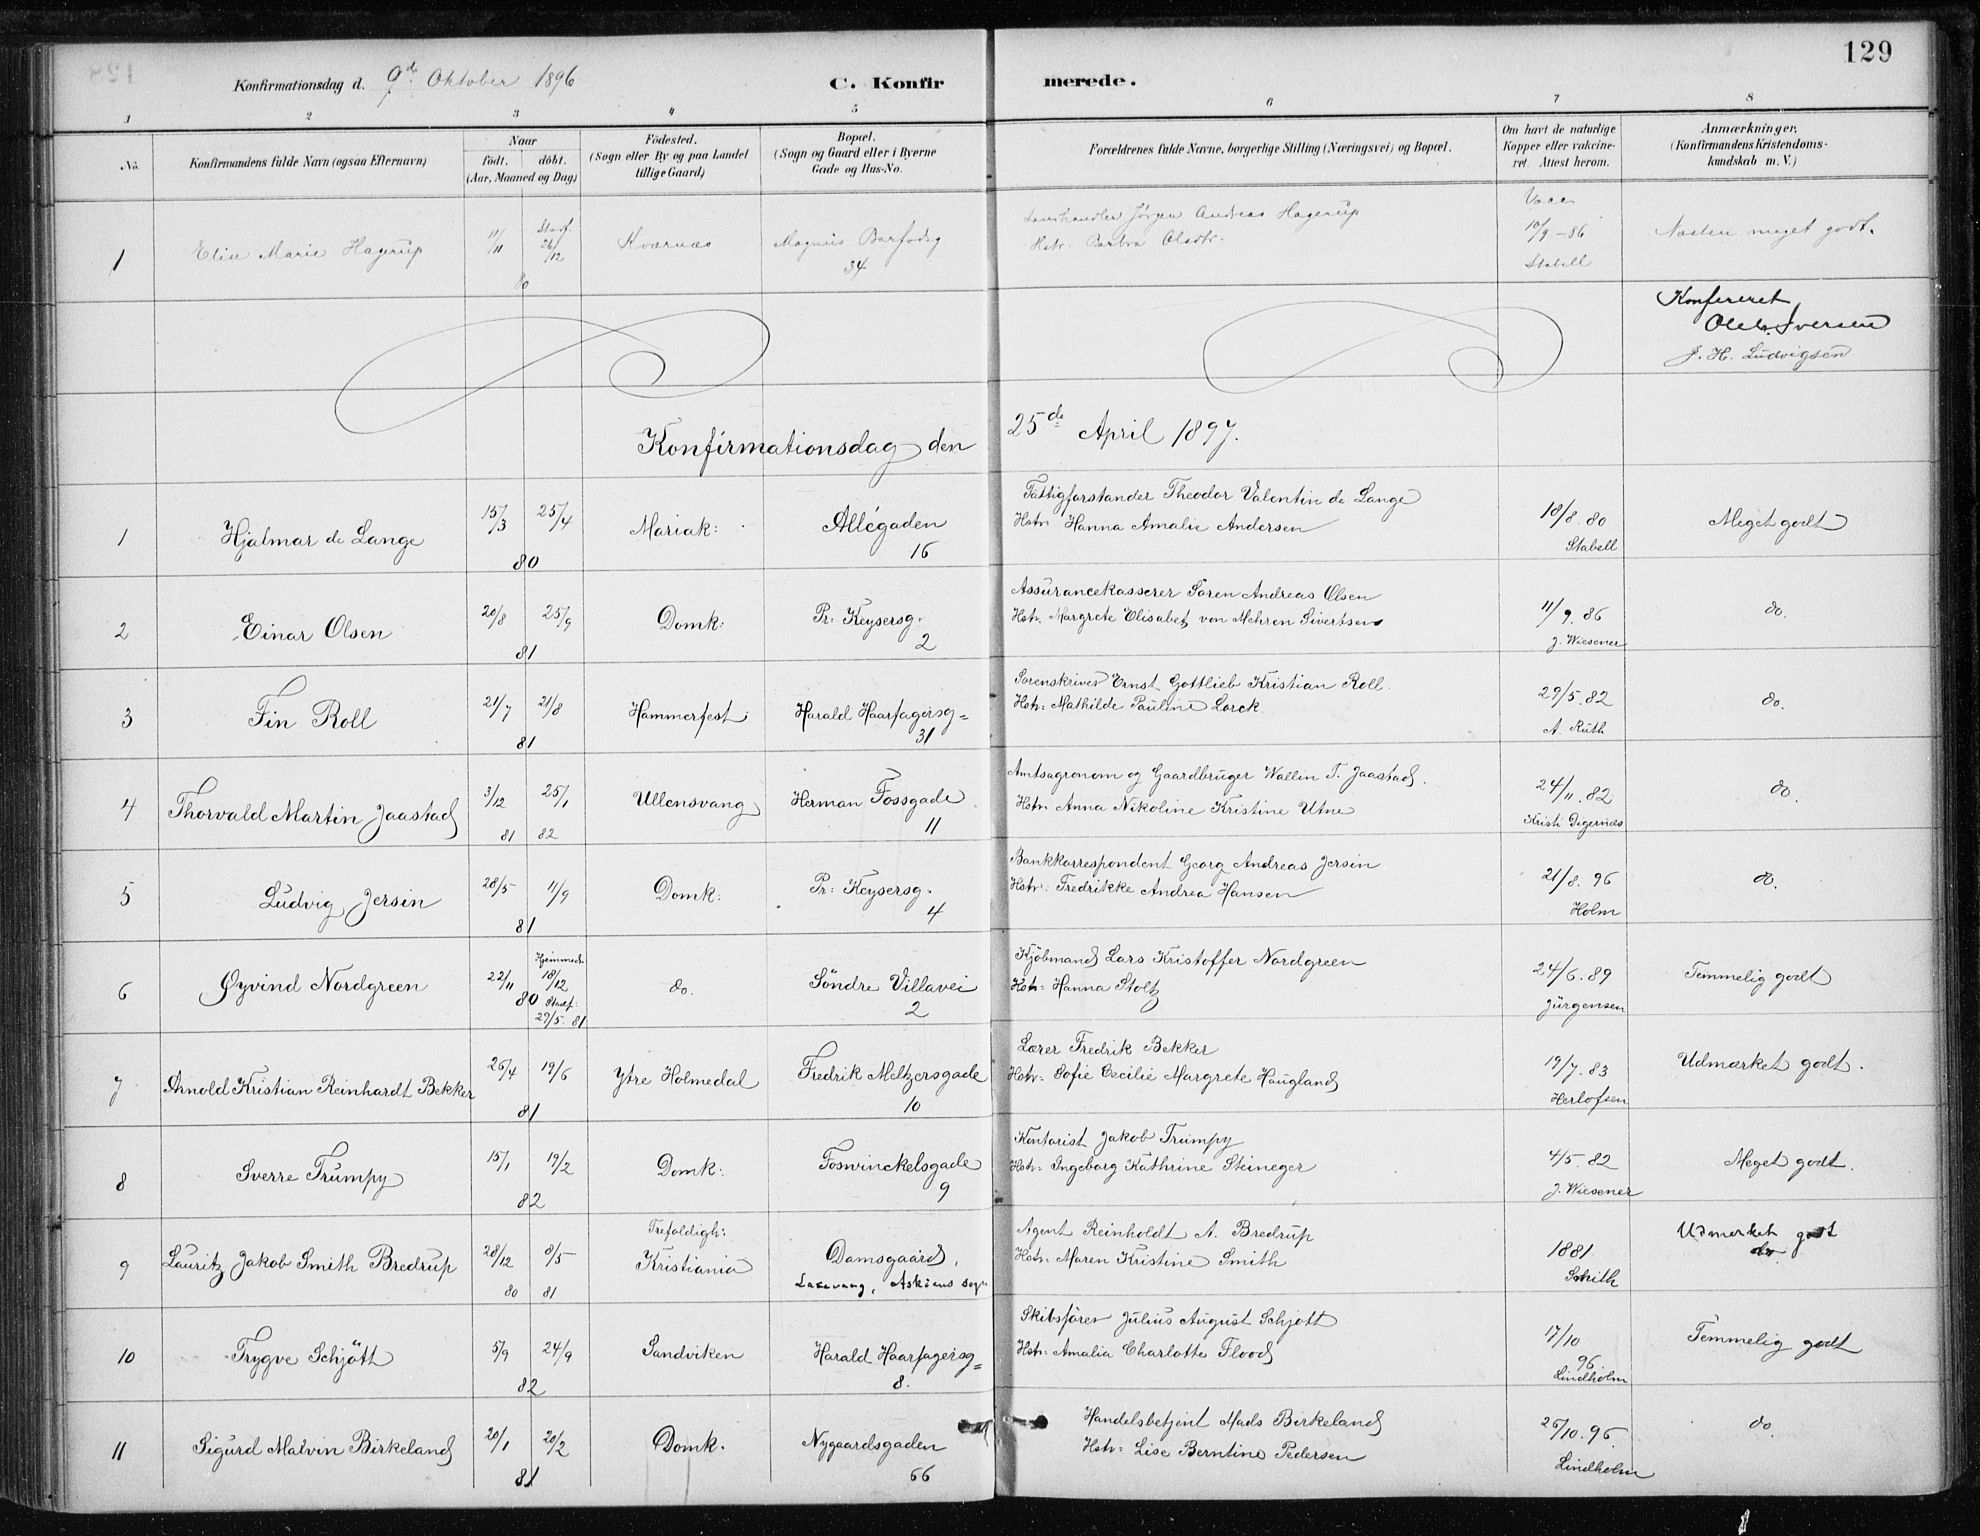 129
Konfirmationsdag d. 9de Oktober 1896
C. Konfirmerede.
1 2 3 4 5 6 7 8
No. Konfirmandens fulde Navn (ogsaa Efternavn) Naar født. døbt. (Aar, Maaned og Dag) Födested. (Sogn eller By og paa Landet tillige Gaard) Bopæl. (Sogn og Gaard eller i Byerne Gade og Hus-No. Forældrenes fulde Navne, borgerlige Stilling (Næringsvei) og Bopæl. Om havt de naturlige Kopper eller vakcineret. Attest herom. Anmærkninger. (Konfirmandens Kristendomskundskab m. V.)
1 Elise Marie Hagerup 11/11 Stadf. 26/12 80 Kværnæs Magnus Barfodsg 34
Landhandler Jörgen Andreas Hagerup
Hstr. Barbra Olsdtr.
Vacc. 10/9 - 86 Stabell
Næsten meget godt.
Konfereret
Ole Iversen
J. H. Ludvigsen
Konfirmationsdag den 25de April 1897.
1 Hjalmar de Lange 15/3 25/4 80 Mariak: Allégaden 16
Fattigforstander Theodor Valentin de Lange
Hstr. Hanna Amalie Andersen
18/8. 80 Stabell
Meget godt
2 Einar Olsen 20/8 25/9 81 Domk: Pr. Keysersg. 2
Assurancekasserer Sören Andreas Olsen
Hstr. Margrete Elisabet von Mehren Sivertsen
11/9. 86 J. Wiesener
do.
3 Fin Roll 21/7 21/8 81 Hammerfest Harald Haarfagersg= 31
Sorenskriver Ernst Gottlieb Kristian Roll.
Hstr. Mathilde Pauline Lorck.
29/5. 82 A. Ruth
do.
4 Thorvald Martin Jaastad 3/12 81 25/1 82 Ullensvang Herman Fossgade 11
Amtsagronom og Gaardbruger Wallin T. Jaastad.
Hstr. Anna Nikoline Kristine Utne
24/11. 82 Kristi Digernæs
do.
5 Ludvig Jersin 28/5 11/9 81 Domk: Pr. Keysersg. 4
Bankkorrespondent Georg Andreas Jersin
Hstr. Fredrikke Andrea Hansen
21/8. 96 Holm
do.
6 Øyvind Nordgreen 22/11 Hjemmed. 18/12 80 Stadf: 29/5. 81 do. Söndre Villavei 2
Kjöbmand Lars Kristoffer Nordgreen
Hstr. Hanna Stoltz
24/6. 89 Jürgensen
Temmelig godt
7 Arnold Kristian Reinhardt Bekker 26/4 19/6 81 Ytre Holmedal Fredrik Meltzersgade 10
Lærer Fredrik Bekker
Hstr. Sofie Cecilie Margrete Haugland
19/7. 83 Herlofsen
Udmærket godt.
8 Sverre Trumpy 15/1 19/2 82 Domk: Foswinckelsgade 9
Kontorist Jakob Trumpy
Hstr. Ingeborg Kathrine Steineger
4/5. 82 J. Wiesener
Meget godt.
9 Lauritz Jakob Smith Bredrup 28/12 80 8/5 81 Trefoldigh: Kristiania Damsgaard, Laxevaag, Asköens sogn
Agent Reinholdt A. Bredrup
Hstr. Maren Kristine Smith
1881 Smith
Udmærket godt
do
10 Trygve Schjött 5/9 24/9 82 Sandviken Harald Haarfagersg= 8.
Skibsförer Julius August Schjött
Hstr. Amalia Charlotte Flood
17/10 96 Lindholm
Temmelig godt
11 Sigurd Malvin Birkeland 20/1 20/2 81 Domk. Nygaardsgaden 66
Handelsbetjent Mads Birkeland
Hstr. Lise Berntine Pedersen
26/10. 96. Lindholm
do.